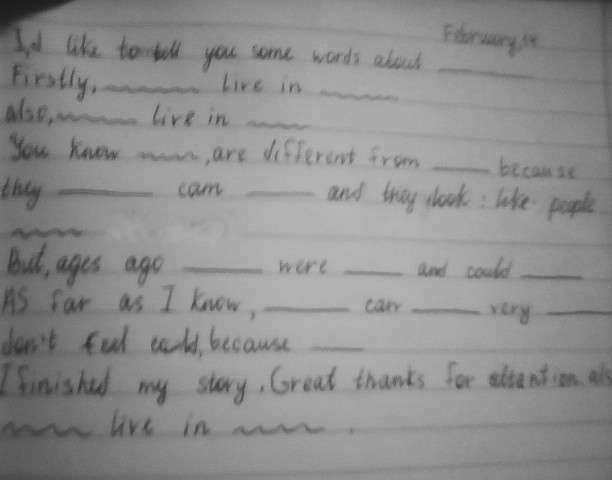 February, 14
I,d like to tell you some words about ______
Firstly, ______ live in ______
also, ______ live in ______
You know ______, are different from ______ because
they ______ cam ______ and they look : like people
______
But, ages ago ______ were ______ and could ______
AS far as I know, ______ can ______ very ______
don't feel because ______
I finished my story. Great thanks for attention als
______ live in ______ .